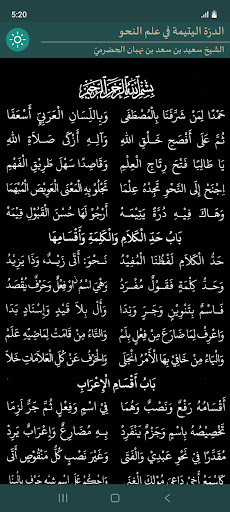 5:20
86%
الدرة اليتيمة في علم النحو
الشيخ سعيد بن سعد بن نبهان الحضرميّ
بِسْمِ اللَّهِ الرَّحْمَنِ الرَّحِيمِ
حَمْدًا لِمَنْ شَرَّفَنَا بِالْمُصْطَفَى وَبِاللِّسَانِ الْعَرَبِيِّ أَسْعَفَا
ثُمَّ عَلَى أَفْصَحِ خَلْقِ اللهِ وَآلِهِ أَزْكَى صَلَاةِ اللهِ
يَا طَالِبًا فَتْحَ رِتَاجِ الْعِلْمِ وَقَاصِدًا سَهْلَ طَرِيقِ الْفَهْمِ
اجْنَحْ إِلَى النَّحْوِ تَجِدْهُ عِلْمَا تَجْلُو بِهِ الْمَعْنَى الْعَوِيصَ الْمُبْهَمَا
وَهَاكَ فِيهِ دُرَّةً يَتِيمَهْ أَرْجُو لَهَا حُسْنَ الْقَبُولِ قِيمَهْ
بَابُ حَدِّ الْكَلَامِ وَالْكَلِمَةِ وَأَقْسَامِهَا
حَدُّ الْكَلَامِ لَفْظُنَا الْمُفِيدُ نَحْوُ: أَتَى زَيْدٌ، وَذَا يَزِيدُ
وَحَدُّ كِلْمَةٍ فَقَوْلٌ مُفْرَدُ وَهْيَ اسْمٌ اوْ فِعْلٌ وَحَرْفٌ يُقْصَدُ
فَاسْمٌ بِتَنْوِينٍ وَجَرٍّ وَنِدَا وَأَلْ بِلَا قَيْدٍ وَإِسْنَادٍ بَدَا
وَاعْرِفْ لِمَا ضَارَعَ مِنْ فِعْلٍ بِلَمْ وَالتَّاءُ مِنْ قَامَتْ لِمَاضِيهِ عَلَمْ
وَالْيَاءُ مِنْ خَافِي بِهَا الْأَمْرُ انْجَلَى وَالْحَرْفُ عَنْ كُلِّ الْعَلَامَاتِ خَلَا
بَابُ أَقْسَامِ الْإِعْرَابِ
أَقْسَامُهُ رَفْعٌ وَنَصْبٌ وَهُمَا فِي اسْمٍ وَفِعْلٍ ثُمَّ جَرٌّ لَزِمَا
تَخْصِيصُهُ بِاسْمٍ وَجَزْمٌ يَنْفَرِدْ بِهِ مُضَارِعٌ وَإِعْرَابٌ يَرِدْ
مُقَدَّرًا فِي نَحْوِ عَبْدِي وَالْفَتَى وَغَيْرُ نَصْبِ كُلِّ مَنْقُوصٍ أَتَى